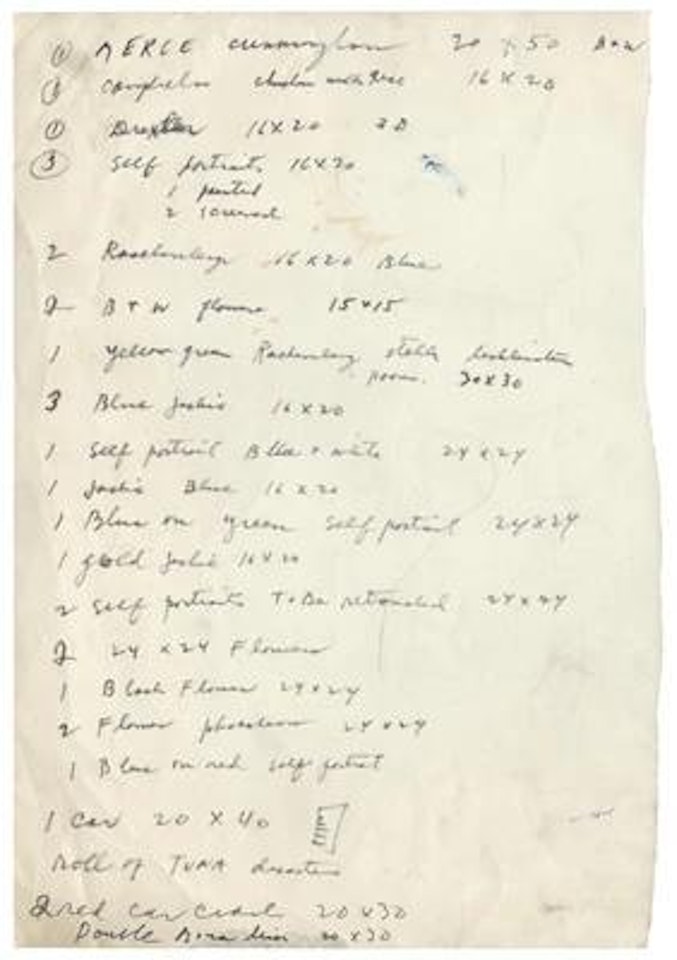 ① MERCE Cunningham 20 X 50 B+W
① Campbells chicken with rice 16 X 20
① 16X20
③ Self portraits 16X20
1 painted
2 screened
2 Rauschenberg 16 X 20 Blue
2 B + W flowers 15X15
1 yellow green Rauschenberg
30X30
3 Blue Jackie 16 X 20
1 Self portrait Blue + white 24 X 24
1 Jackie Blue 16 X 20
1 Blue on green Self portrait 24X24
1 gold Jackie 16X20
2 Self portraits To Be 24X24
2 24 X 24 Flowers
1 Black Flower 24X24
2 Flower 24X24
1 Blue on red self portrait
1 Car 20 X 40
Roll of TUNA disasters
2 red car crash 20 X30
Double 20 X30